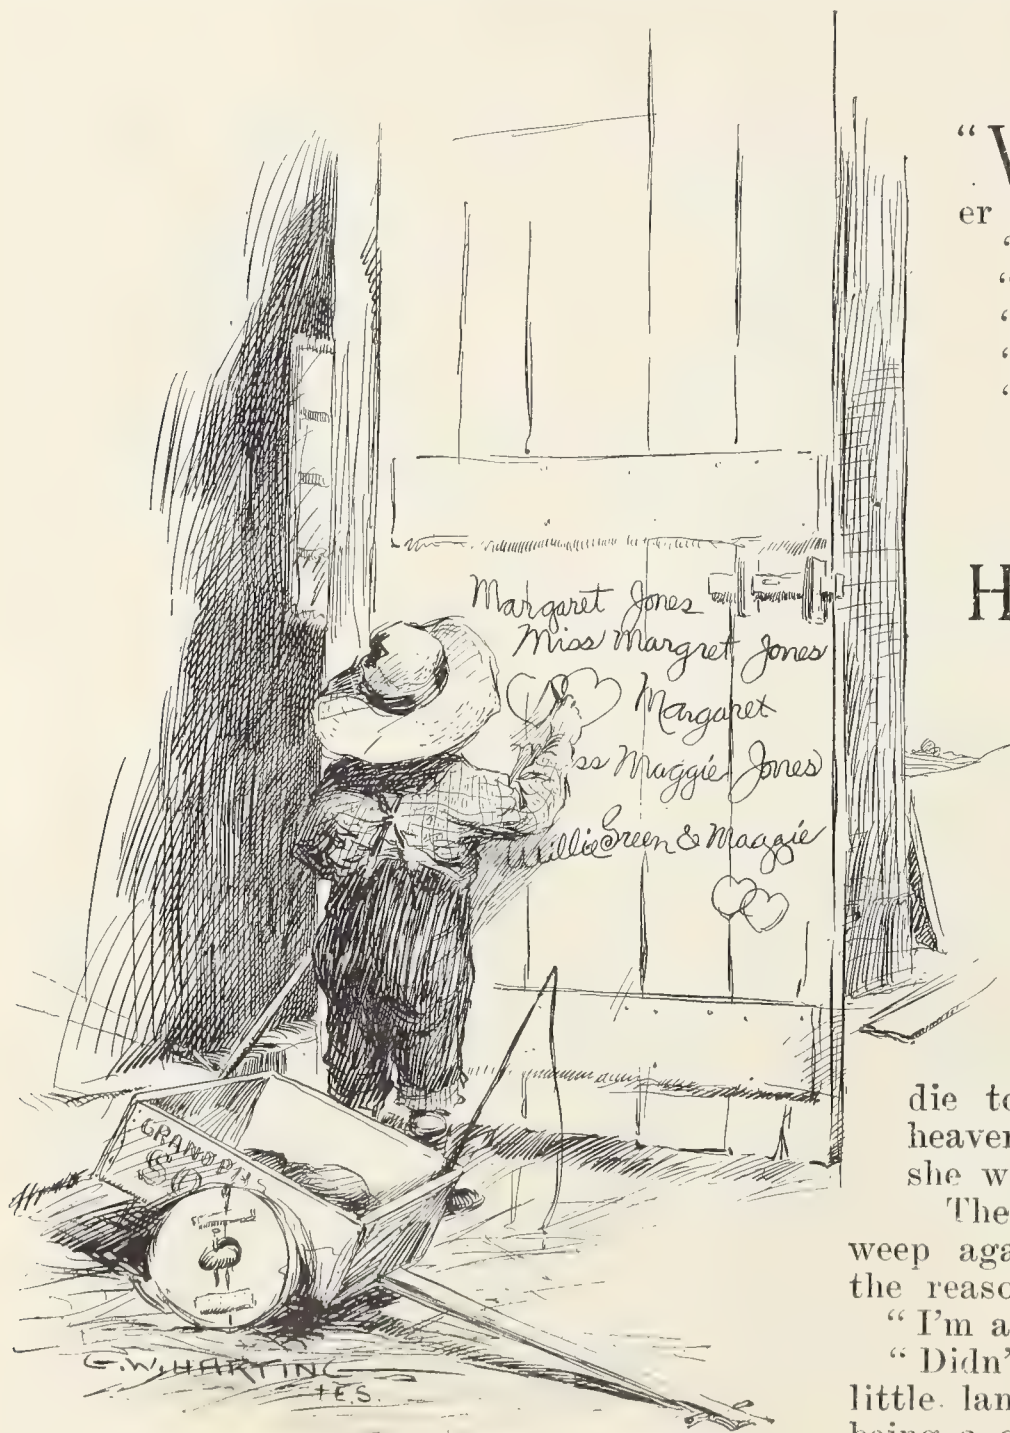 Margaret Jones
Miss Margret Jones
Margaret
ss Maggie Jones
Willie Green & Maggie
GRAND PI
SO
G.W. HARTING
"V
er
H
die to
heaven
she w
The
weep aga
the reaso
"I'm a
"Didn'
little lan